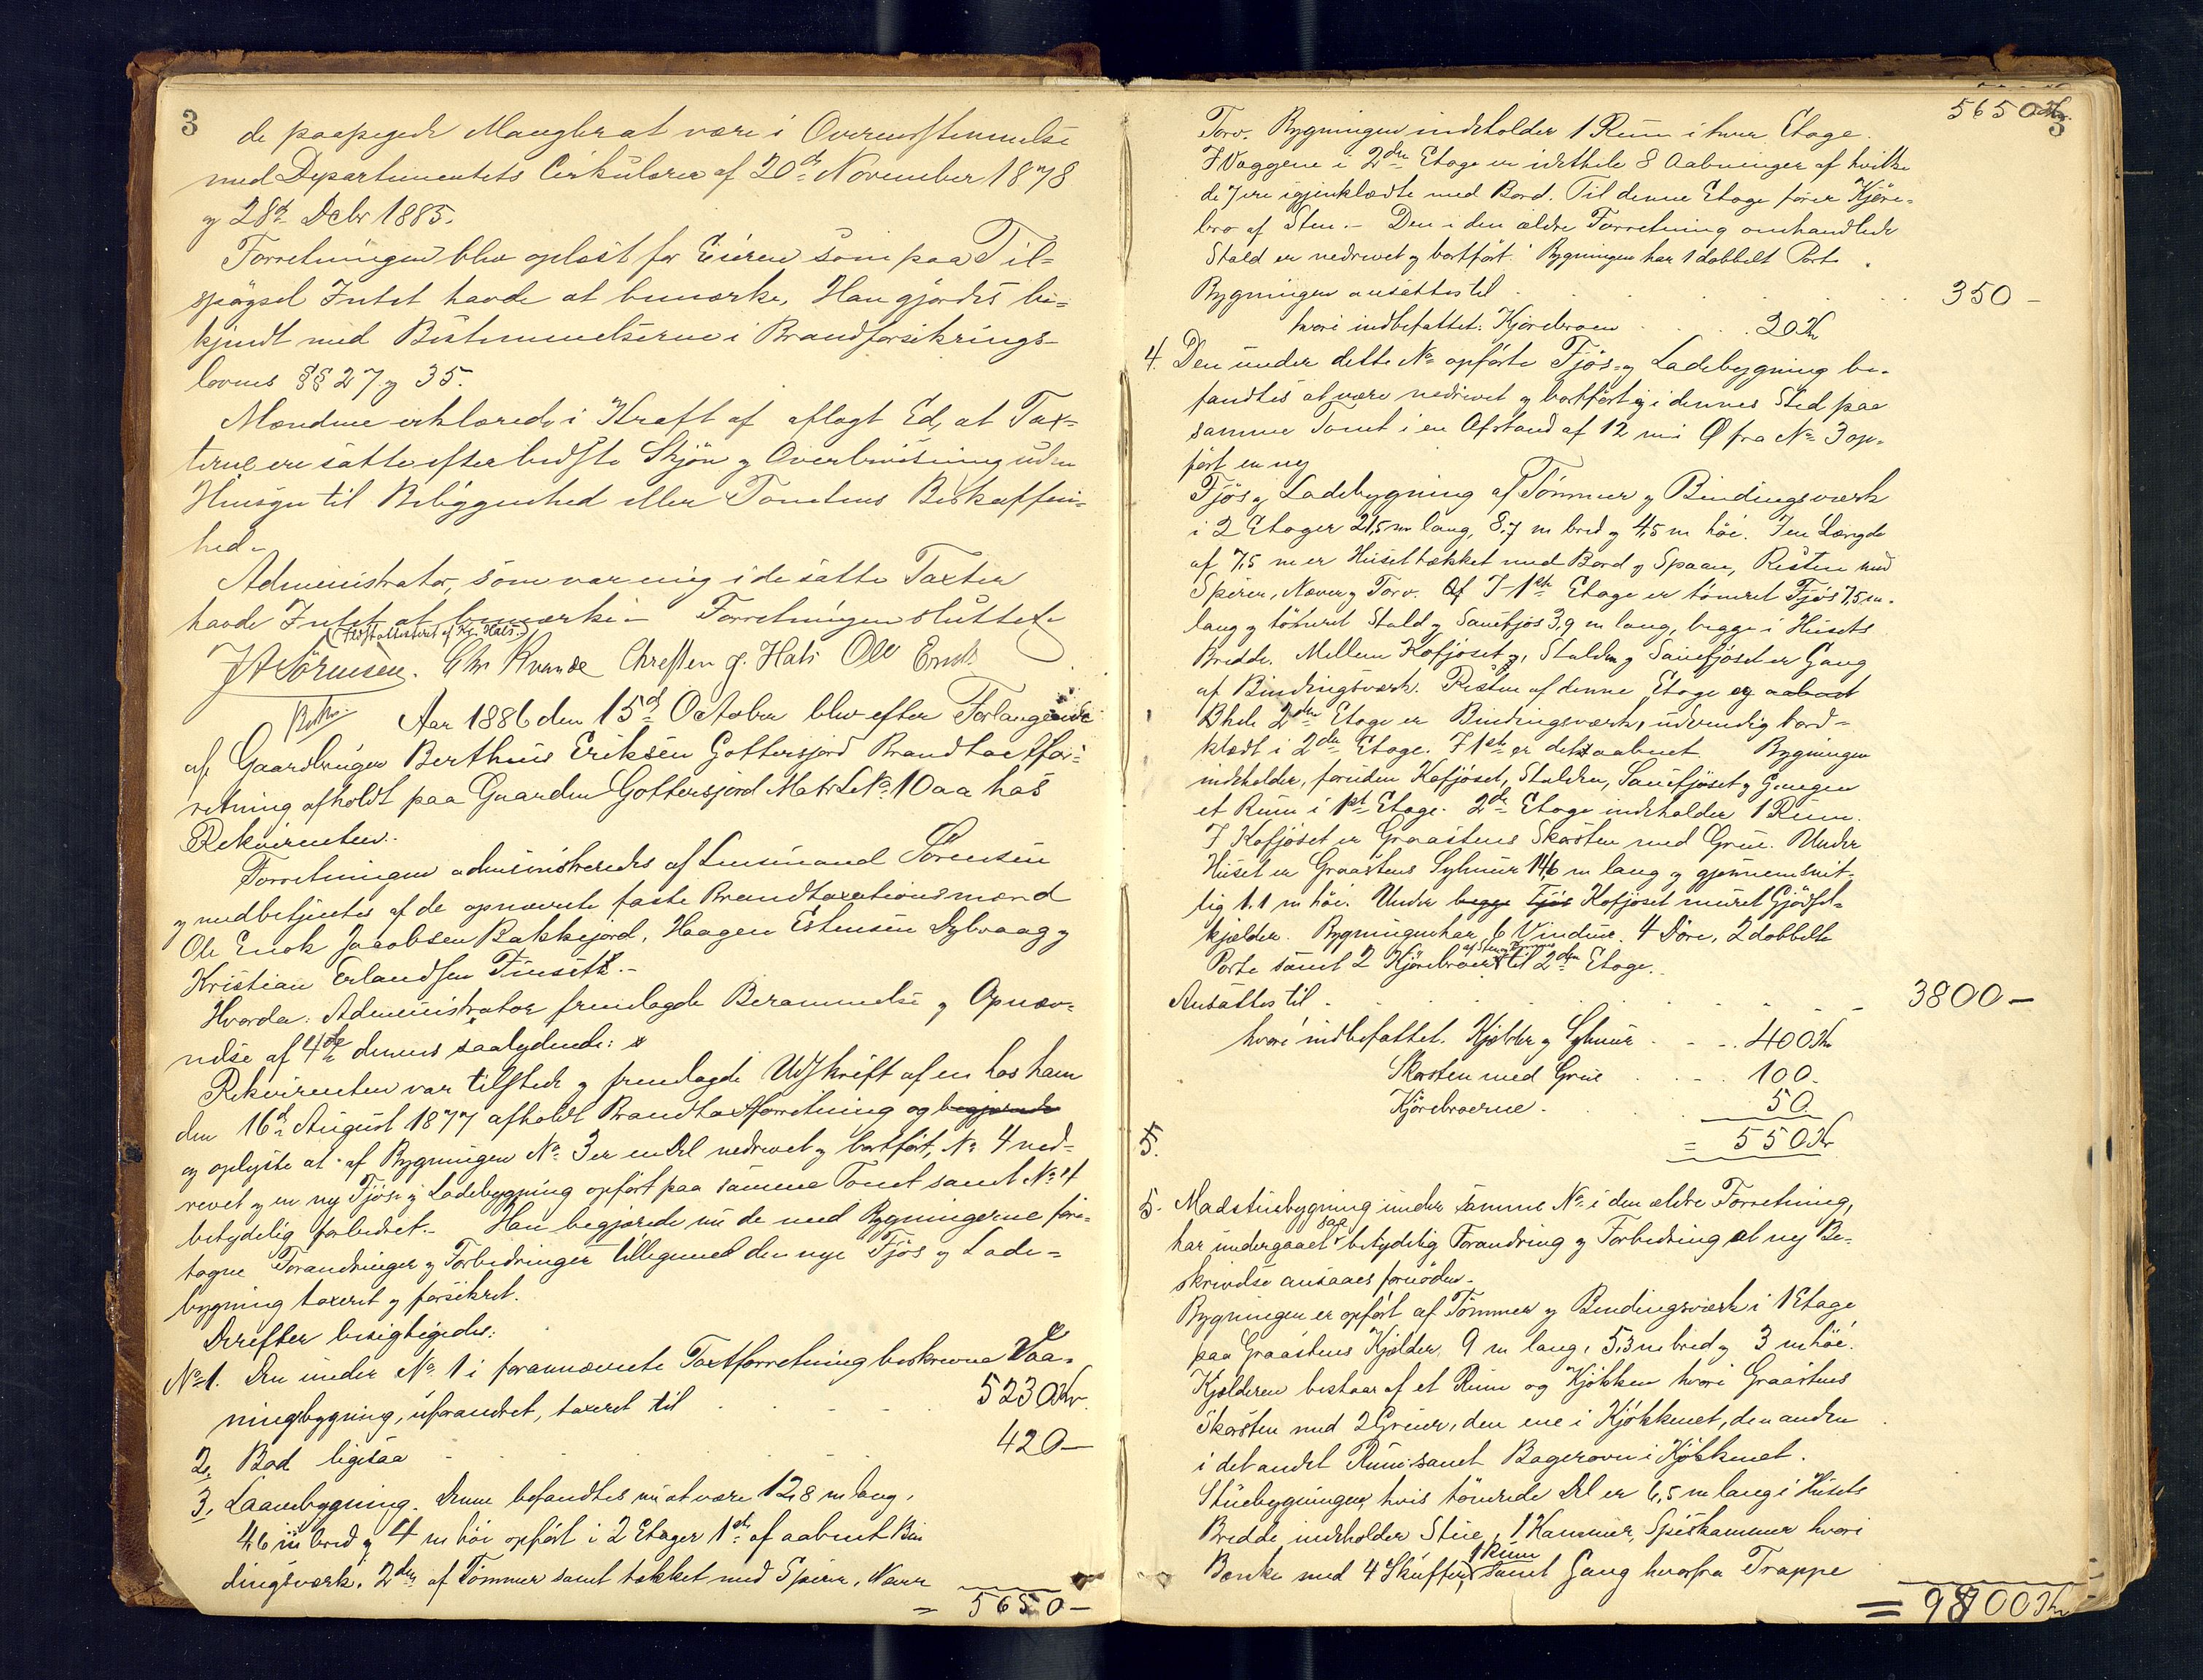 3
de paapegede Mangler at være i Overensstemmelse
med Departementets Cirkulærer af 20de November 1878
og 28de Debr 1885.
Forretningen blev oplæst for Eieren som paa Til-
spørgsel Intet havde at bemærke. Han gjordes be-
kjendt med Bestemmelserne i Brandforsikrings-
lovens §§ 27 og 35.
Mændene erklærede i Kraft af aflagt Ed, at Tax-
terne ere satte efter bedste Skjøn og Overbevisning uden
Hensyn til Beliggenhed eller Tomtens Beskaffen-
hed.
Administrator, som var enig i de satte Taxter
havde Intet at bemærke. Forretningen sluttet.
(Testatlisteret af Kr. Hals.)
J A Sørensen. Chr Kvande Chresten J. Hals Ole Enok
Aar 1886 den 15de October blev efter Forlangende
af Gaardbruger Berthus Eriksen Gottersjord Brandtaxtfor-
retning afholdt paa Gaarden Gottersjord Matr L No 10aa hos
Rekvirenten.
Forretningen administreredes af Lensmand Sørensen
og medbetjentes af de opnævnte faste Brandtaxationsmænd
Ole Enok Jacobsen Bakkejord, Haagen Estensen Dybvaag og
Kristian Erlandsen Finseth.-
Hvorda: Administrator fremlagde Berammelse og Opnæv-
nelse af 4de dennes saalydende:
Rekvirenten var tilstede og fremlagde Udskrift af en hos ham
den 16de August 1877 afholdt Brandtaxtforretning og begjærede
og oplyste at af Bygningen No 3 er en Del nedrevet og bortført, No 4 ned-
revet og en ny Fjøs og Ladebygning opført paa samme Tomt samt No 4
betydelig forbedret.- Han begjærede nu de med Bygningerne fore-
tagne Forandringer og Forbedringer tilligemed den nye Fjøs og Lade-
bygning taxeret og forsikret.
Derefter besigtigedes:
No 1. Den under No 1 i forannævnte Taxtforretning beskrevne Vaa-
ningsbygning, uforandret, taxeret til 5230 Kr.
2. Bod ligesaa 420 —
3. Laavebygning. Denne befandtes nu at være 12,8 m lang,
4,6 m bred og 4 m høi opført i 2 Etager 1ste af aabent Bin
dingsværk. 2den af Tømmer samt tækket med Spirer, Næver
= 5650 —
5650 Kr.
3
Torv. Bygningen indeholder 1 Rum i hver Etage.
I Væggene i 2den Etage er idethele 8 Aabninger af hvilke
de 7 ere igjenklædte med Bord. Til denne Etage fører Kjøre-
bro af Sten.- Den i den ældre Forretning omhandlede
Stald er nedrevet og bortført. Bygningen har 1 dobbelt Port.
Bygningen ansættes til 350 —
hvori indbefattet: Kjørebroen 20 Kr
4. Den under dette No opførte Fjøs og Ladebygning be-
fandtes at være nedrevet og bortført og i dennes Sted paa
samme Tomt i en Afstand af 12 m i Ø fra No 3 op-
ført en ny
Fjøs og Ladebygning af Tømmer og Bindingsværk
i 2 Etager 21,5 m lang, 8,7 m bred og 4,5 m høi. I en Længde
af 7,5 m er Huset tækket med Bord og Spaan, Resten med
Spirer, Næver og Torv. Af I 1ste Etage er tømret Fjøs 7,5 m.
lang og tømret Stald og Sauefjøs 3,9 m lang, begge i Husets
Bredde. Mellem Kofjøset og, Stalden og Sauefjøset er Gang
af Bindingsværk. Resten af denne Etage og aabent
Bhele 2den Etage er Bindingsværk, udvendig bord-
klædt i 2den Etage. I 1ste er det aabent. Bygningen
indeholder, foruden Kofjøset, Stalden, Sauefjøset og Gangen
et Rum i 1ste Etage. 2den Etage indeholder 1 Rum.
I Kofjøset er Graastens Skorsten med Grue. Under
Huset er Graastens Sylmur 14,6 m lang og gjennemsnit-
lig 1.1 m høi. Under begge Fjøs Kofjøset muret Gjødsel-
kjelder. Bygningen har 6 Vinduer. 4 Døre, 2 dobbelte
Porte samt 2 Kjørebroer af Sten og Tømmer til 2den Etage.
Ansættes til 3800 —
hvori indbefattet. Kjelder og Sylmur 400 Kr
Skorsten med Grue 100.
Kjørebroerne. 50.
= 550 Kr
5.
5. Madstuebygning under samme No i den ældre Forretning,
har undergaaet saa betydelig Forandring og Forbedring at ny Be-
skrivelse ansaaes fornøden.
Bygningen er opført af Tømmer og Bindingsværk i 1 Etage
paa Graastens Kjelder, 9 m lang, 5,3 m bred og 3 m høi.
Kjelderen bestaar af et Rum og Kjøkken hvori Graastens
Skorsten med 2 Gruer, den ene i Kjøkkenet, den anden
i det andet Rum samt Bagerovn i Kjøkkenet.
Stuebygningen, hvis tømrede Del er 6,5 m lang i Husets
Bredde, indeholder Stue, 1 Kammer, Spiskammer hvori
Bænke med 4 Skuffer, 1 Rum samt Gang hvorfra Trappe
= 9800 Kr